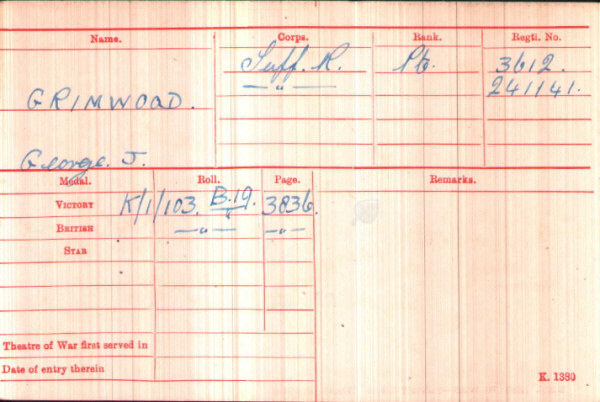 Name. Corps. Rank. Regtl. No.
Suff. R. Pte. 3612.
—"— 241141.
GRIMWOOD.
George. J.
Medal. Roll. Page. Remarks.
VICTORY K/1/103. B.19. 3836.
BRITISH —"— —"—
STAR
Theatre of War first served in
Date of entry therein
K. 1380